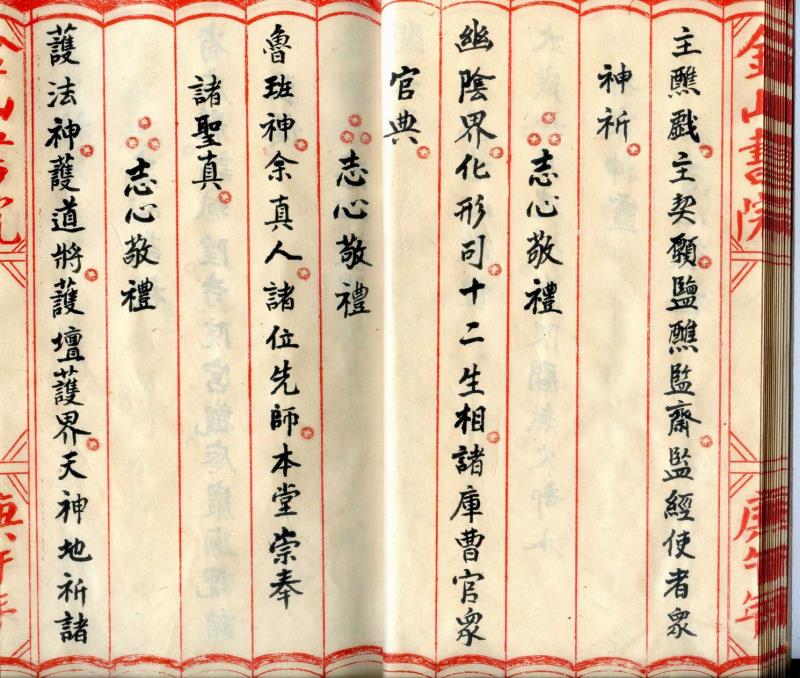 金山書院 庚午年
主醮戲主契願監醮監齋監經使者衆
神祈
志心敬禮
幽陰界化形司十二生相諸庫曹官衆
官典
志心敬禮
魯班神余真人諸位先師本堂崇奉
諸聖真
志心敬禮
護法神護道將護壇護界天神地祈諸